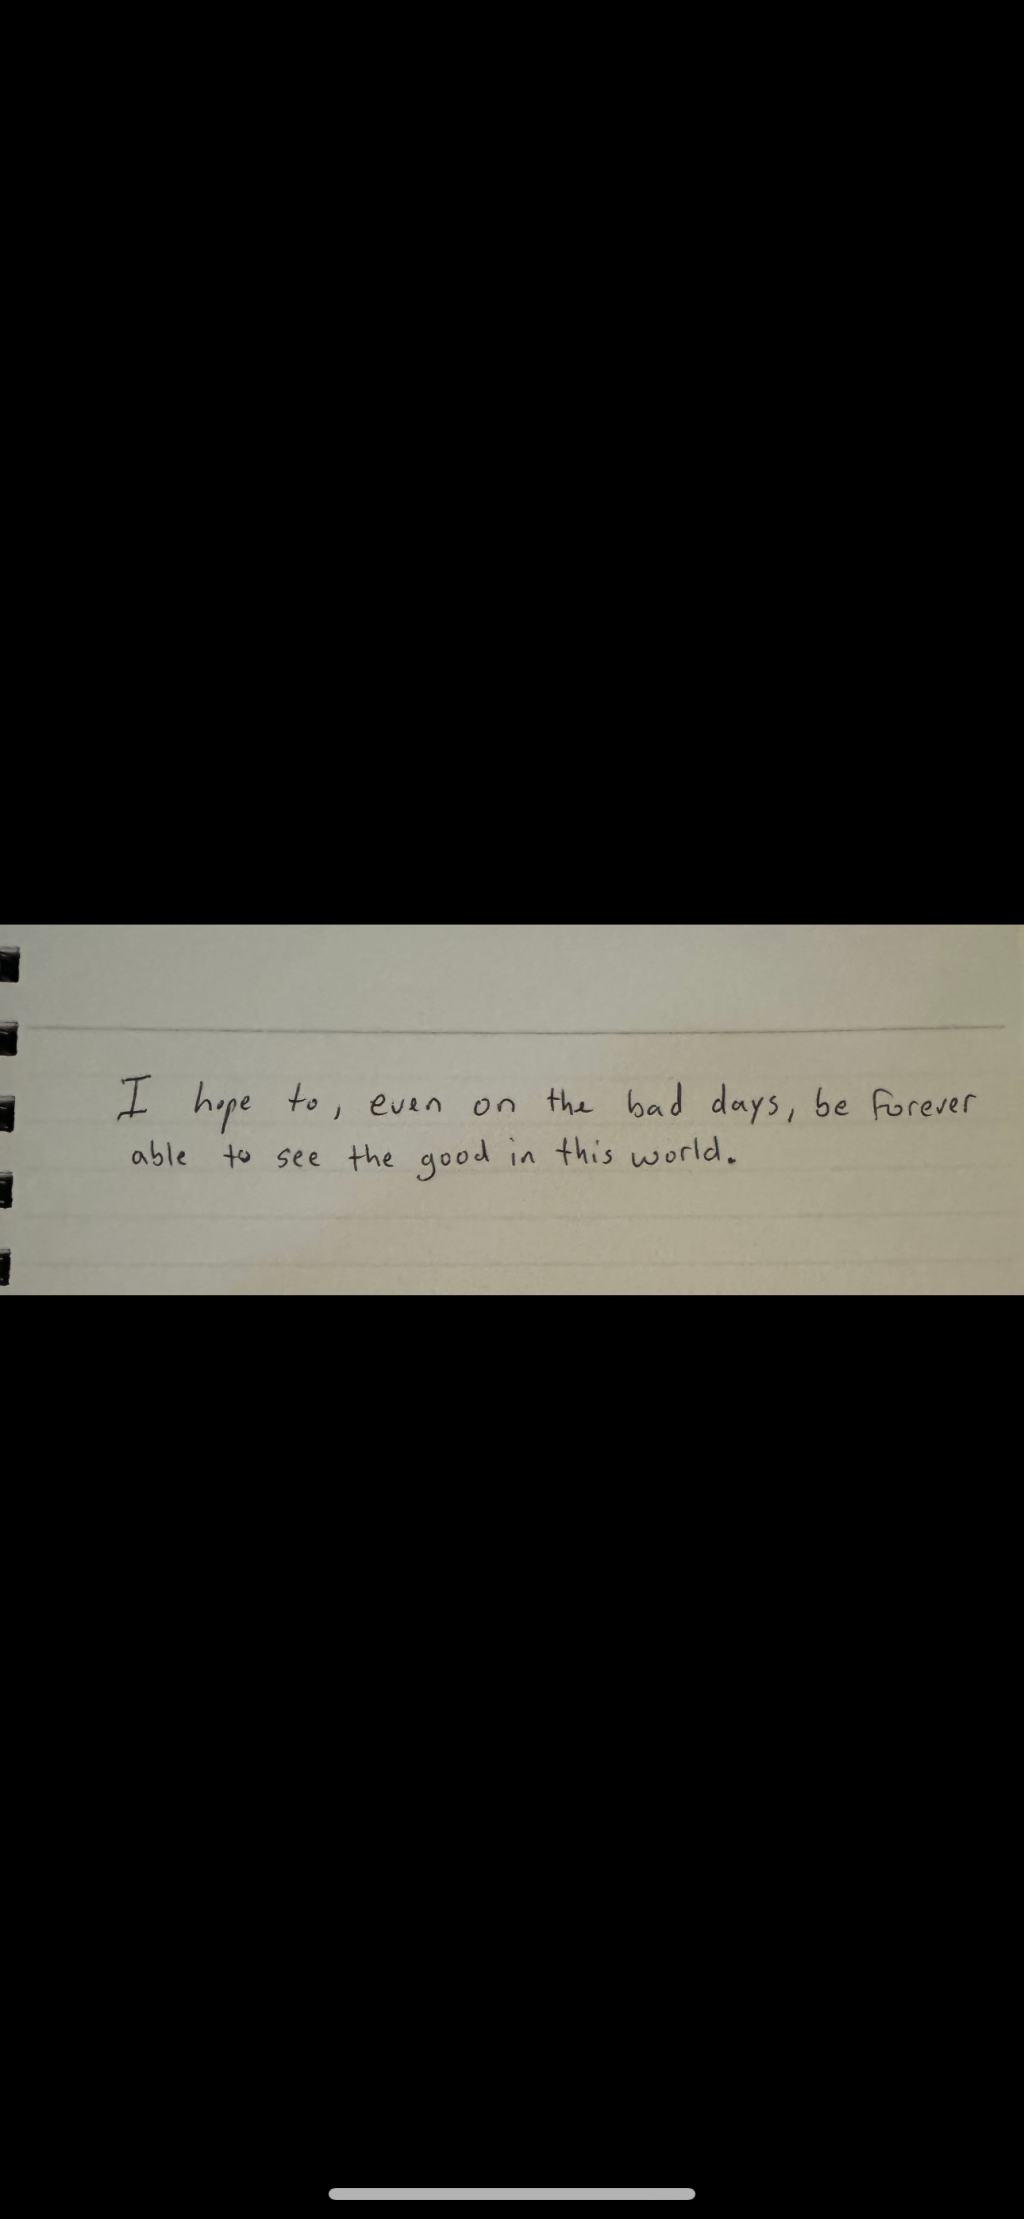 I hope to, even on the bad days, be forever
able to see the good in this world.